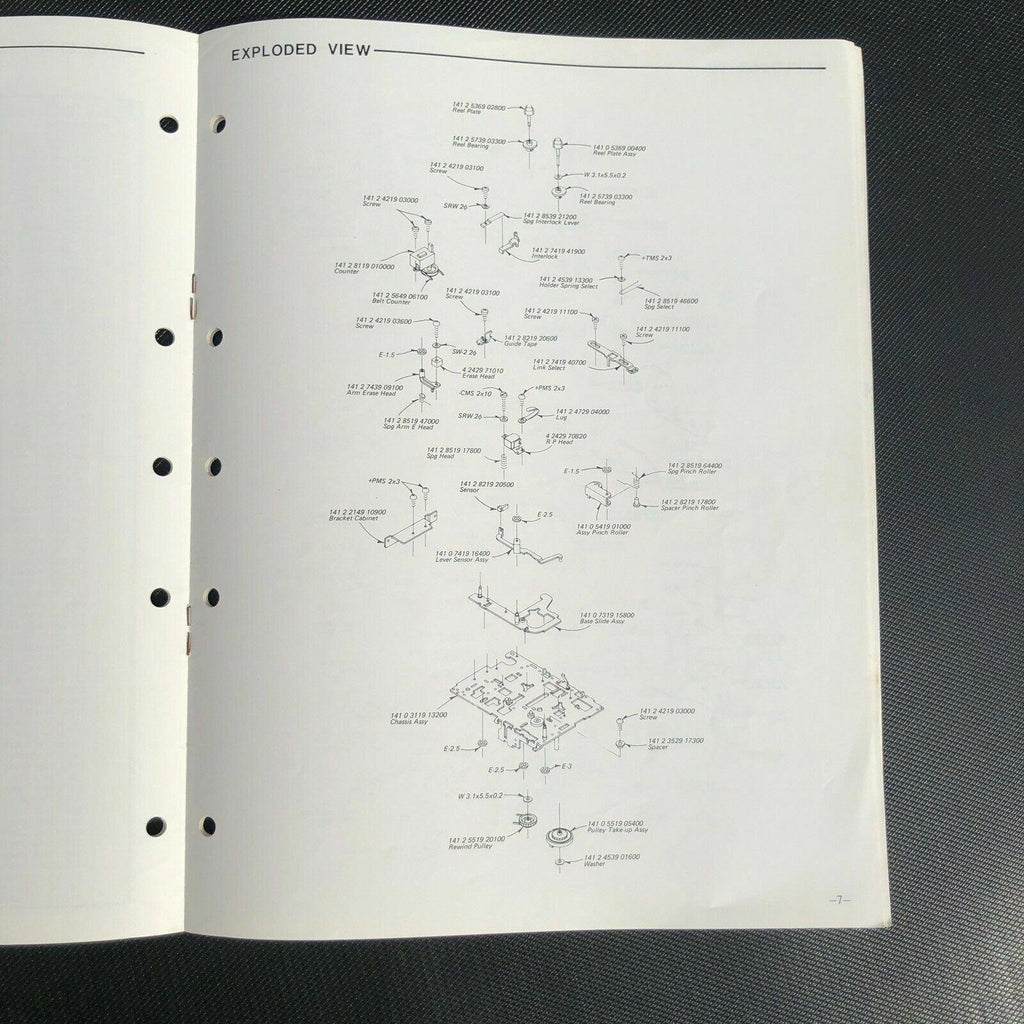 EXPLODED VIEW
141 2 5369 02800
Reel Plate
141 2 5739 03300
Reel Bearing
141 0 5369 00400
Reel Plate Assy
W 3.1x5.5x0.2
141 2 5739 03300
Reel Bearing
141 2 4219 03100
Screw
SRW 26
141 2 4219 03000
Screw
141 2 8539 21200
Spg Interlock Lever
141 2 7419 41900
Interlock
141 2 8119 010000
Counter
141 2 5649 06100
Belt Counter
+TMS 2x3
141 2 4539 13300
Holder Spring Select
141 2 8519 46600
Spg Select
141 2 4219 03100
Screw
141 2 4219 11100
Screw
141 2 4219 03600
Screw
141 2 4219 11100
Screw
141 2 8219 20600
Guide Tape
E-1.5
SW-2 26
141 2 7419 40700
Link Select
4 2429 71010
Erase Head
141 2 7439 09100
Arm Erase Head
-CMS 2x10
+PMS 2x3
141 2 8519 47000
Spg Arm E Head
SRW 26
141 2 4729 04000
Lug
4 2429 70820
R P Head
141 2 8519 17800
Spg Head
E-1.5
141 2 8519 64400
Spg Pinch Roller
+PMS 2x3
141 2 8219 20500
Sensor
141 2 8219 17800
Spacer Pinch Roller
141 2 2149 10900
Bracket Cabinet
E-2.5
141 0 5419 01000
Assy Pinch Roller
141 0 7419 16400
Lever Sensor Assy
141 0 7319 15800
Base Slide Assy
141 0 3119 13200
Chassis Assy
141 2 4219 03000
Screw
141 2 3529 17300
Spacer
E-2.5
E-2.5
E-3
W 3.1x5.5x0.2
141 2 5519 20100
Rewind Pulley
141 0 5519 05400
Pulley Take-up Assy
141 2 4539 01600
Washer
—7—